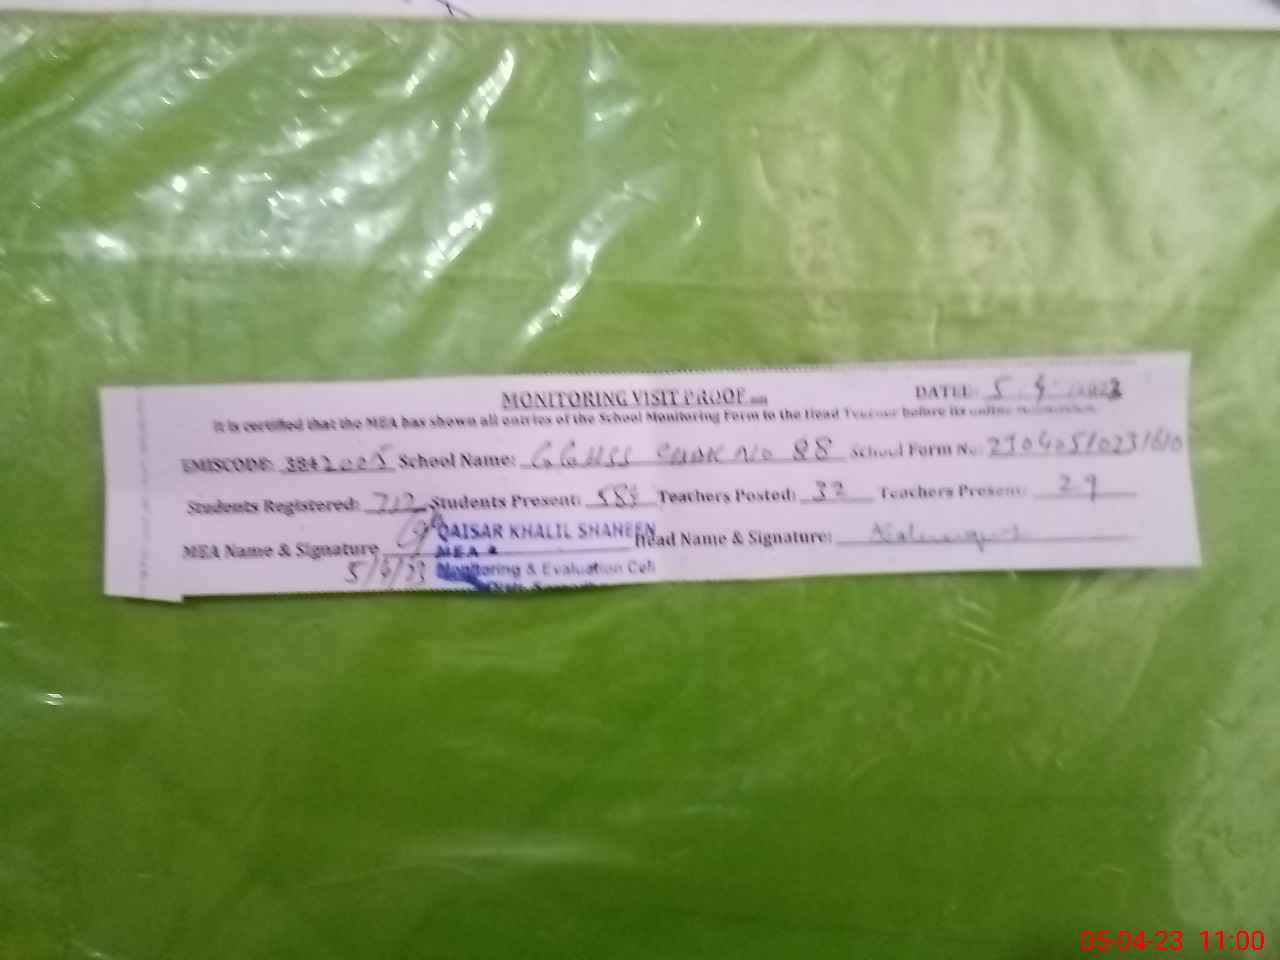 MONITORING VISIT PROOF
DATED: 5.4.2023
It is certified that the MEA has shown all entries of the School Monitoring Form to the Head Teacher before its online submission.
EMISCODE: 3842005 School Name: GGHSS CHAK NO 88 School Form No:
Students Registered: 712 Students Present: Teachers Posted: 32 Teachers Present: 29
MEA Name & Signature QAISAR KHALIL SHAHEEN Head Name & Signature:
MEA
5/4/23 Monitoring & Evaluation Cell
05-04-23 11:00